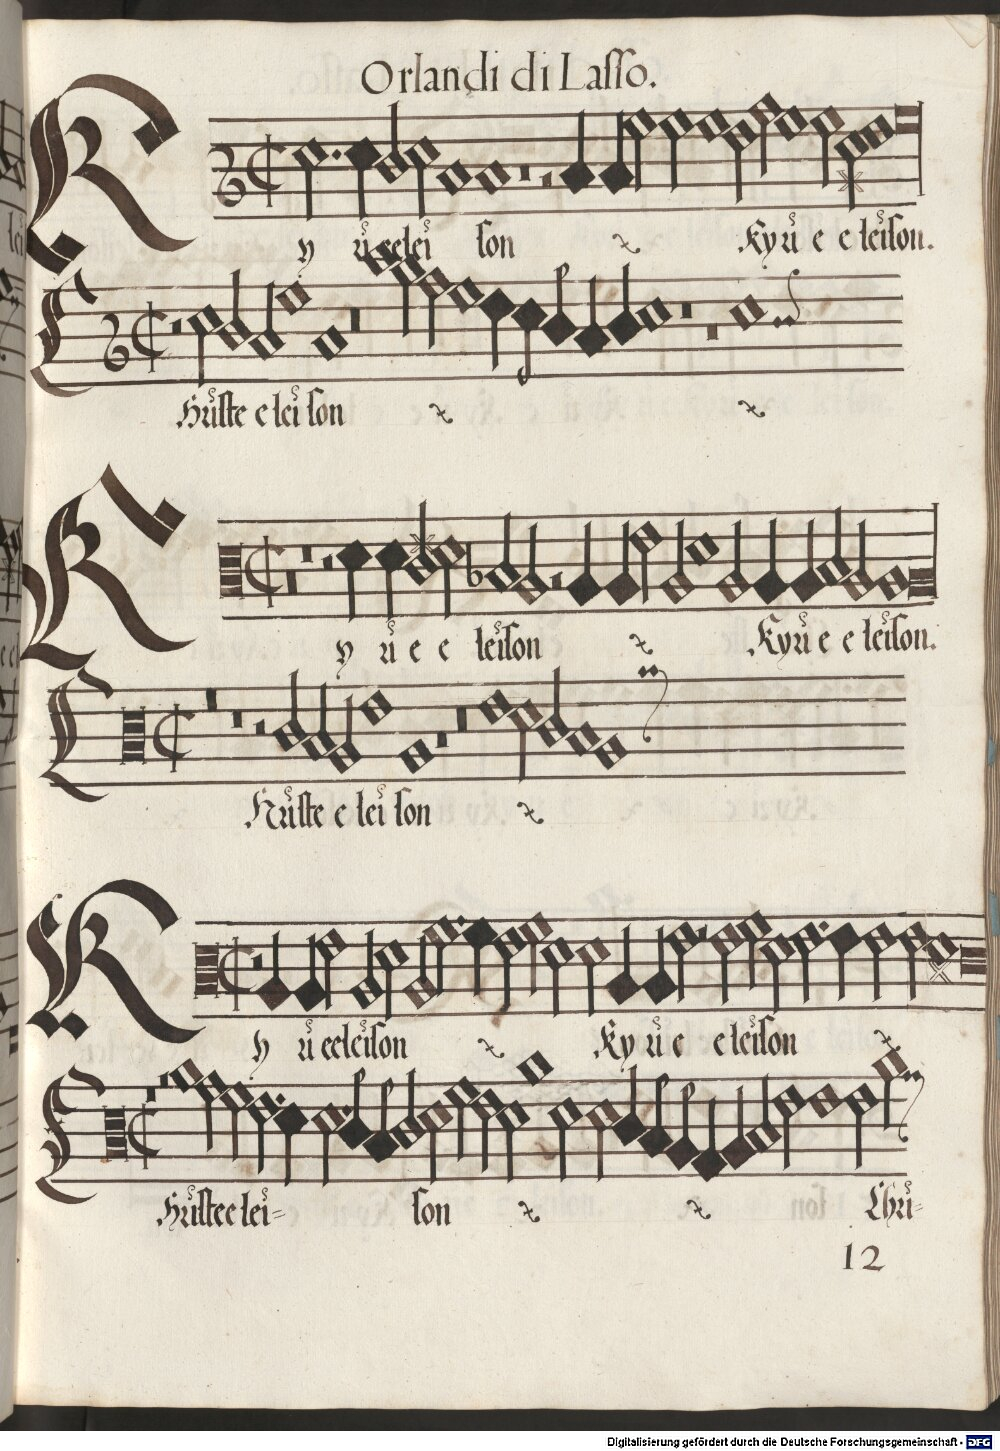 Orlandi di Lasso.
K yri eelei son Kyri e e leison.
Christe e lei son
K y ri e e leison Kyri e e leison.
Christe e lei son
K y ri eeleison Ky ri e e leison
Christe e lei= son Chri=
12
Digitalisierung gefördert durch die Deutsche Forschungsgemeinschaft - DFG